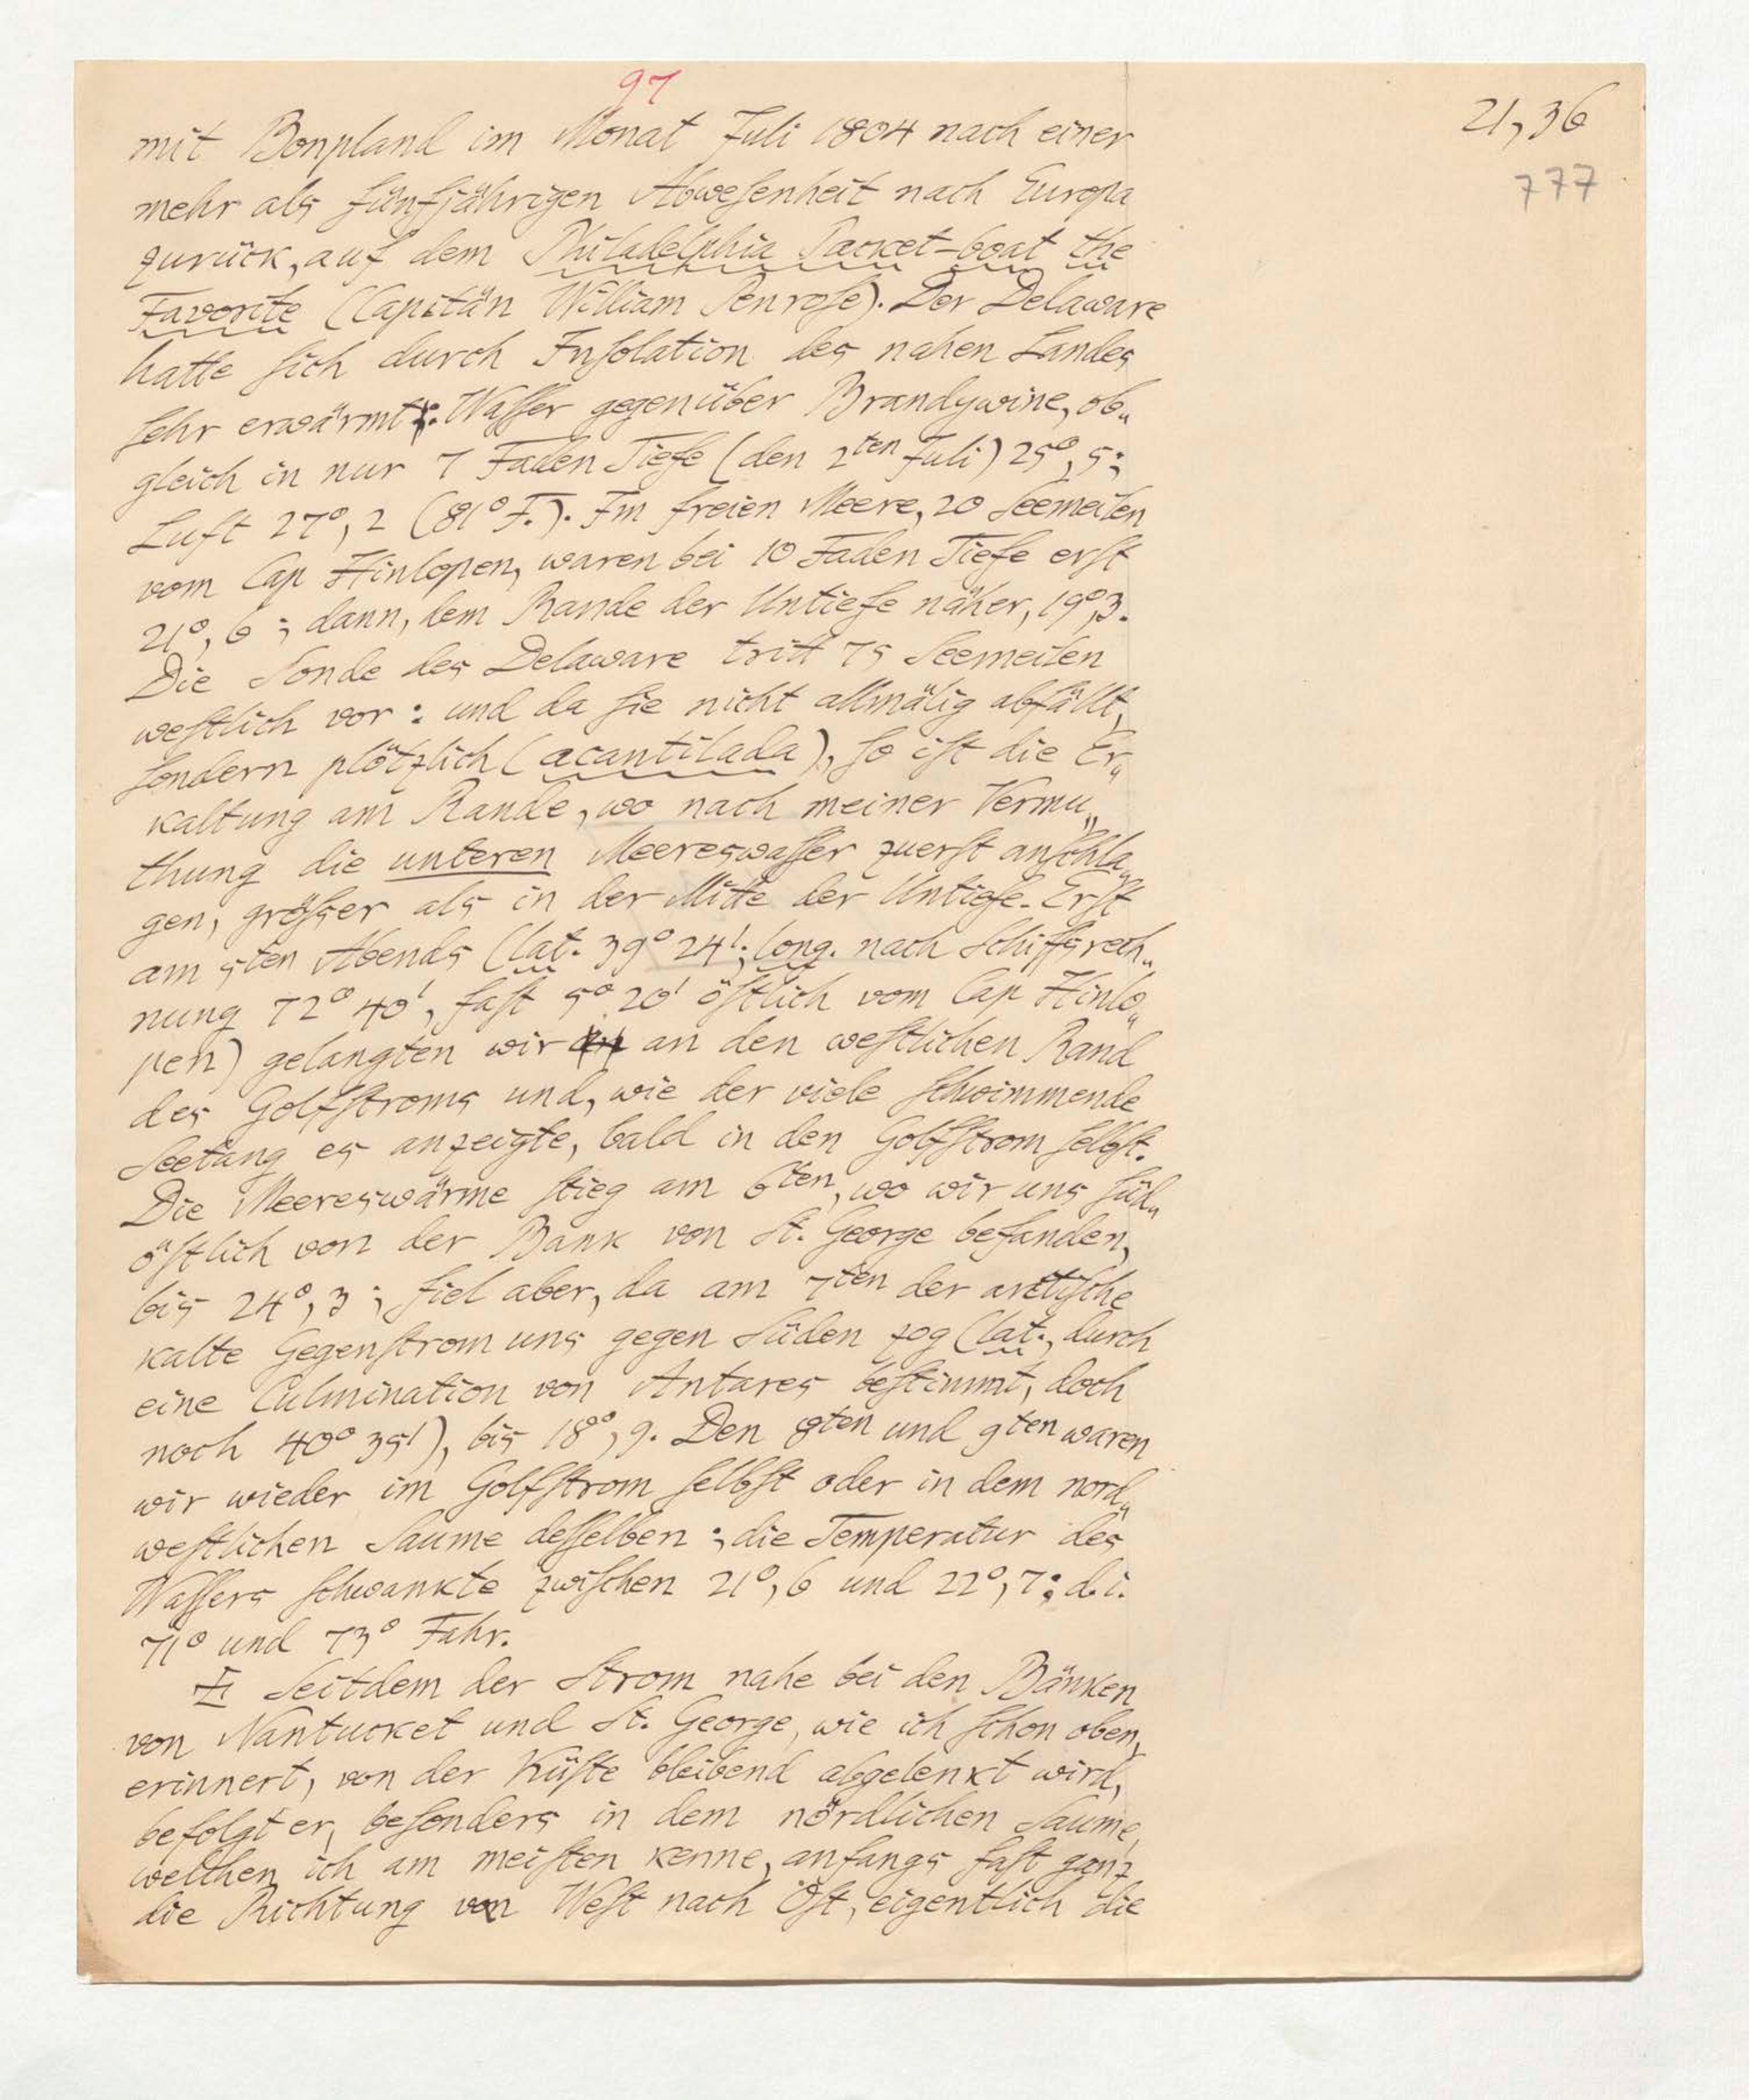 97
21,36
777
mit Bonpland im Monat Juli 1804 nach einer
mehr als fünfjährigen Abweſenheit nach Europa
zurück, auf dem Philadelphia Packet-boat the
Favorite (Capitän William Penroſe). Der Delaware
hatte ſich durch Inſolation des nahen Landes
ſehr erwärmt: Waſſer gegenüber Brandywine, ob„
gleich in nur 7 Faden Tiefe (den 2ten Juli) 25°,5;
Luft 27°,2 (81° F.). Im freien Meere, 20 Seemeilen
vom Cap Hinlopen, waren bei 10 Faden Tiefe erſt
21°,6; dann, dem Rande der Untiefe näher, 19°,3.
Die Sonde des Delaware tritt 75 Seemeilen
weſtlich vor: und da ſie nicht allmälig abfällt,
ſondern plötzlich (acantilada), ſo iſt die Er„
kaltung am Rande, wo nach meiner Vermu„
thung die unteren Meereswaſſer zuerſt anſchla„
gen, gröſser als in der Mitte der Untiefe. Erſt
am 5ten Abends (lat. 39° 24'; long. nach Schiffsrech„
nung 72° 40', faſt 5° 20' öſtlich vom Cap Hinlo„
pen) gelangten wir an den weſtlichen Rand
des Golfſtroms und, wie der viele ſchwimmende
Seetang es anzeigte, bald in den Golfſtrom ſelbſt.
Die Meereswärme ſtieg am 6ten, wo wir uns ſüd„
öſtlich von der Bank von St. George befanden,
bis 24°,3; fiel aber, da am 7ten der arctiſche
kalte Gegenſtrom uns gegen Süden zog (lat., durch
eine Culmination von Antares beſtimmt, doch
noch 40° 35'), bis 18°,9. Den 8ten und 9ten waren
wir wieder im Golfſtrom ſelbſt oder in dem nord„
weſtlichen Saume deſſelben; die Temperatur des
Waſſers ſchwankte zwiſchen 21°,6 und 22°,7: d. i.
71° und 73° Fahr.
Seitdem der Strom nahe bei den Bänken
von Nantucket und St. George, wie ich ſchon oben
erinnert, von der Küſte bleibend abgelenkt wird,
befolgt er, beſonders in dem nördlichen Saume,
welchen ich am meiſten kenne, anfangs faſt ganz
die Richtung von Weſt nach Oſt, eigentlich die